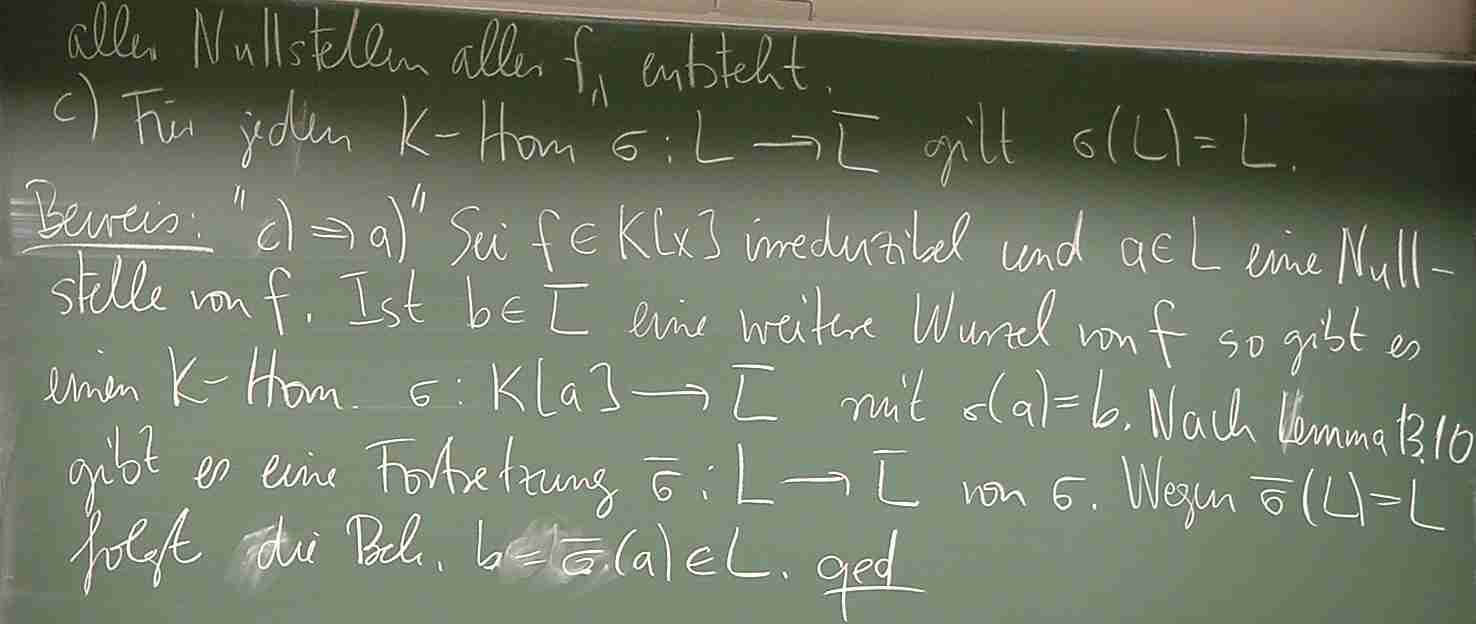 aller Nullstellen aller f_λ entsteht.
c) Für jeden K-Hom σ: L → L̅ gilt σ(L) = L.
Beweis: "c) ⇒ a)" Sei f ∈ K[x] irreduzibel und a ∈ L eine Null-
stelle von f. Ist b ∈ L̅ eine weitere Wurzel von f so gibt es
einen K-Hom. σ: K[a] → L̅ mit σ(a) = b. Nach Lemma 13.10
gibt es eine Fortsetzung σ̅: L → L̅ von σ. Wegen σ̅(L) = L
folgt die Beh. b = σ̅(a) ∈ L. qed